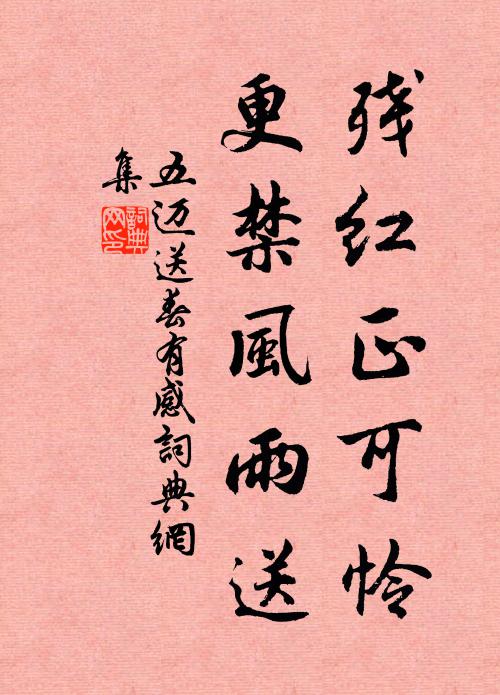 残红正可怜
更禁風雨送
五迈送春有感詞典網
集
詞典
网印